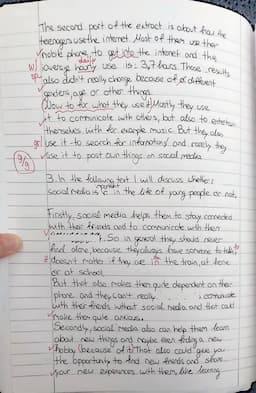 The second part of the extract is about how the
teenagers use the internet. Most of them use their
mobile phone, to get into the internet and the
average hourly use is: 3,7 hours. Those results
also didn't really change because of different
genders, age or other things.
(Now to for what they use it) Mostly they use
it to comunicate with others, but also to entertain
themselves, with for example music. But they also
use it to search for infomation/ and rarely they
use it to post own things on social media.
3. In the following text I will discuss whether
social media is in the life of young people or not.
Firstly, social media helps them to stay connected
with their friends and to communicate with them
. So in general they should never
feel alone because they always have someone to talk,
it doesn't matter if they are in the train, at home
or at school.
But that also makes them quite dependent on their
phone and they can't really communicate
with their friends without social media and that could
make them quite anxious.
Secondly, social media also can help them learn
about new things and maybe even finding a new
hobby (because of it) That also could give you
the opportunity to find new friends and share
your new experiences with them, like learning